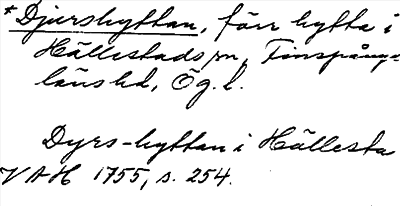 *Djurshyttan, förr hytta i
Hällestads sn, Finspånga-
läns hd, Ög. l.
Dyrs-hyttan i Hällesta
VAH 1755, s. 254.